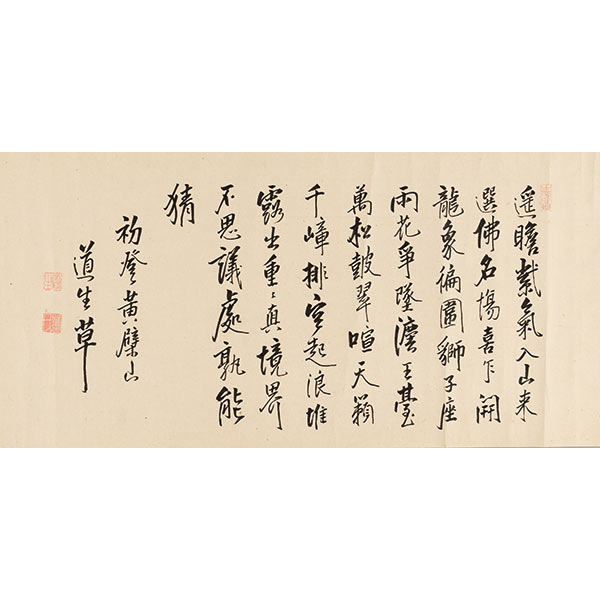 遥瞻紫氣入山来
選佛名場喜乍開
龍象徧圍獅子座
雨花爭墜法王臺
萬松皷翠喧天籟
千嶂排空起浪堆
露出重〻真境界
不思議處孰能
猜
初登黄檗山
道生草